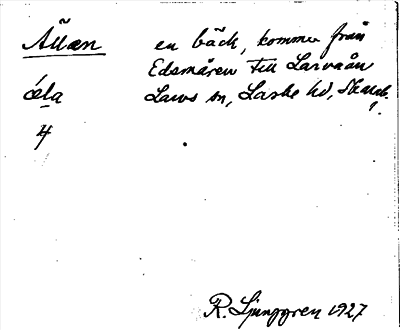 Ällæn en bäck, kommer från
Edsmären till Larvaån
óla Larvs sn, Laske hd, Skarab.
4
R. Ljunggren 1927